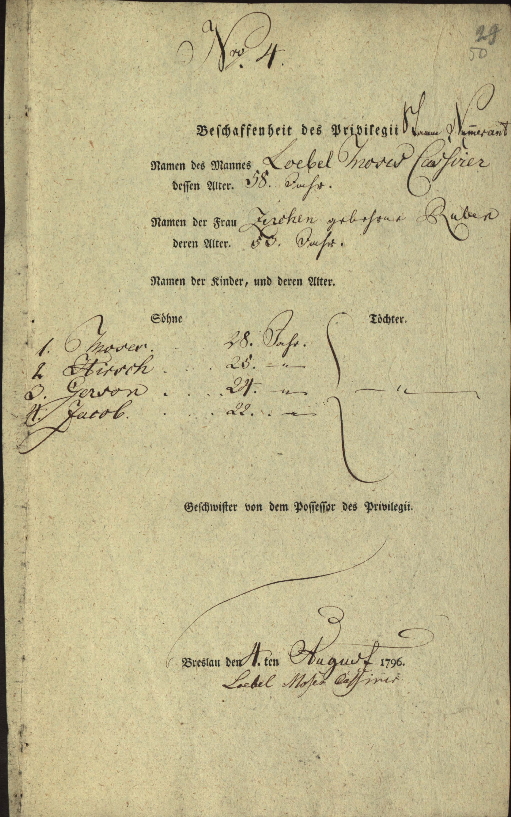 29
50
Nro. 4.
Beschaffenheit des Privilegii Stamm Numerant
Namen des Mannes Loebel Moses Cassirer
dessen Alter. 58. Jahr.
Namen der Frau gebohrne Ruben
deren Alter. 53. Jahr.
Namen der Kinder, und deren Alter.
Söhne Töchter.
1. Moses. . . 28. Jahr.
2 Hirsch . . . 25. - " -
3. Gerson . . . 24. - " - - " -
4. Jacob. . . . 22. - " -
Geschwister von dem Possessor des Privilegii.
Breslau den 4. ten August 1796.
Loebel Moses Cassirer